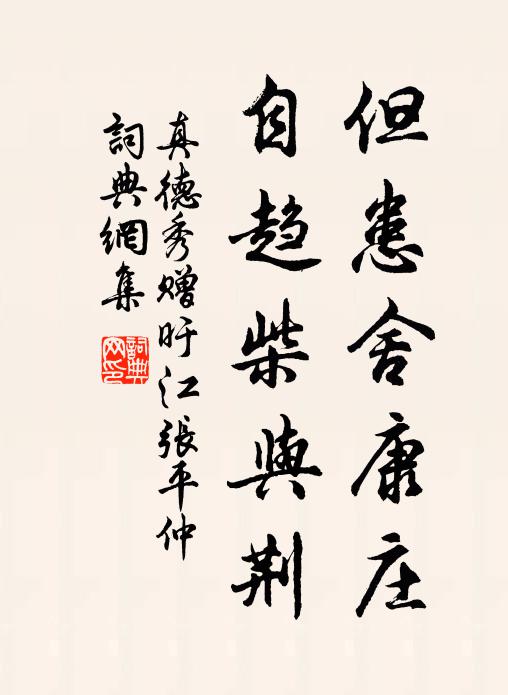 但患舍康庄
自趋柴與荆
真德秀赠盱江張平仲
詞典網集
詞典网印